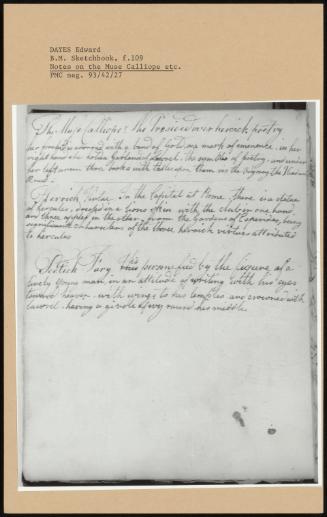 DAYES Edward
B.M. Sketchbook, f.109
Notes on the Muse Calliope etc.
PMC neg. 93/42/27
The Muse Calliope. She presided over heroick poetry
her front is adorned with a band of Gold, as a mark of eminence, in her
right hand she holds a Garland of Laurel, the emblem of poetry, and under
her left arm three books with titles upon them, viz the Odyssey, the Iliad and
Heroick Virtue. In the Capital at Rome there is a statue
of hercules, dressed in a lions skin with the club in one hand
and three apples in the other, from the Garden of Esperides, being
significant characters of the three heroick virtues attributed
to hercules
Poetick Fury. This personified by the figure of a
lively young man in an attitude of writing with his eyes
toward heaven, with wings to his temples and crowned with
laurel, having a girdle of ivy round his middle.